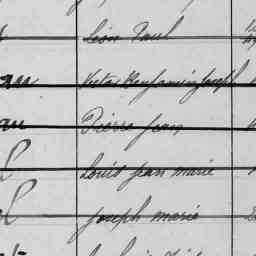 Léon Paul
au Victor Benjamin Joseph
au Pierre Jean
Louis Jean Marie
Joseph Marie